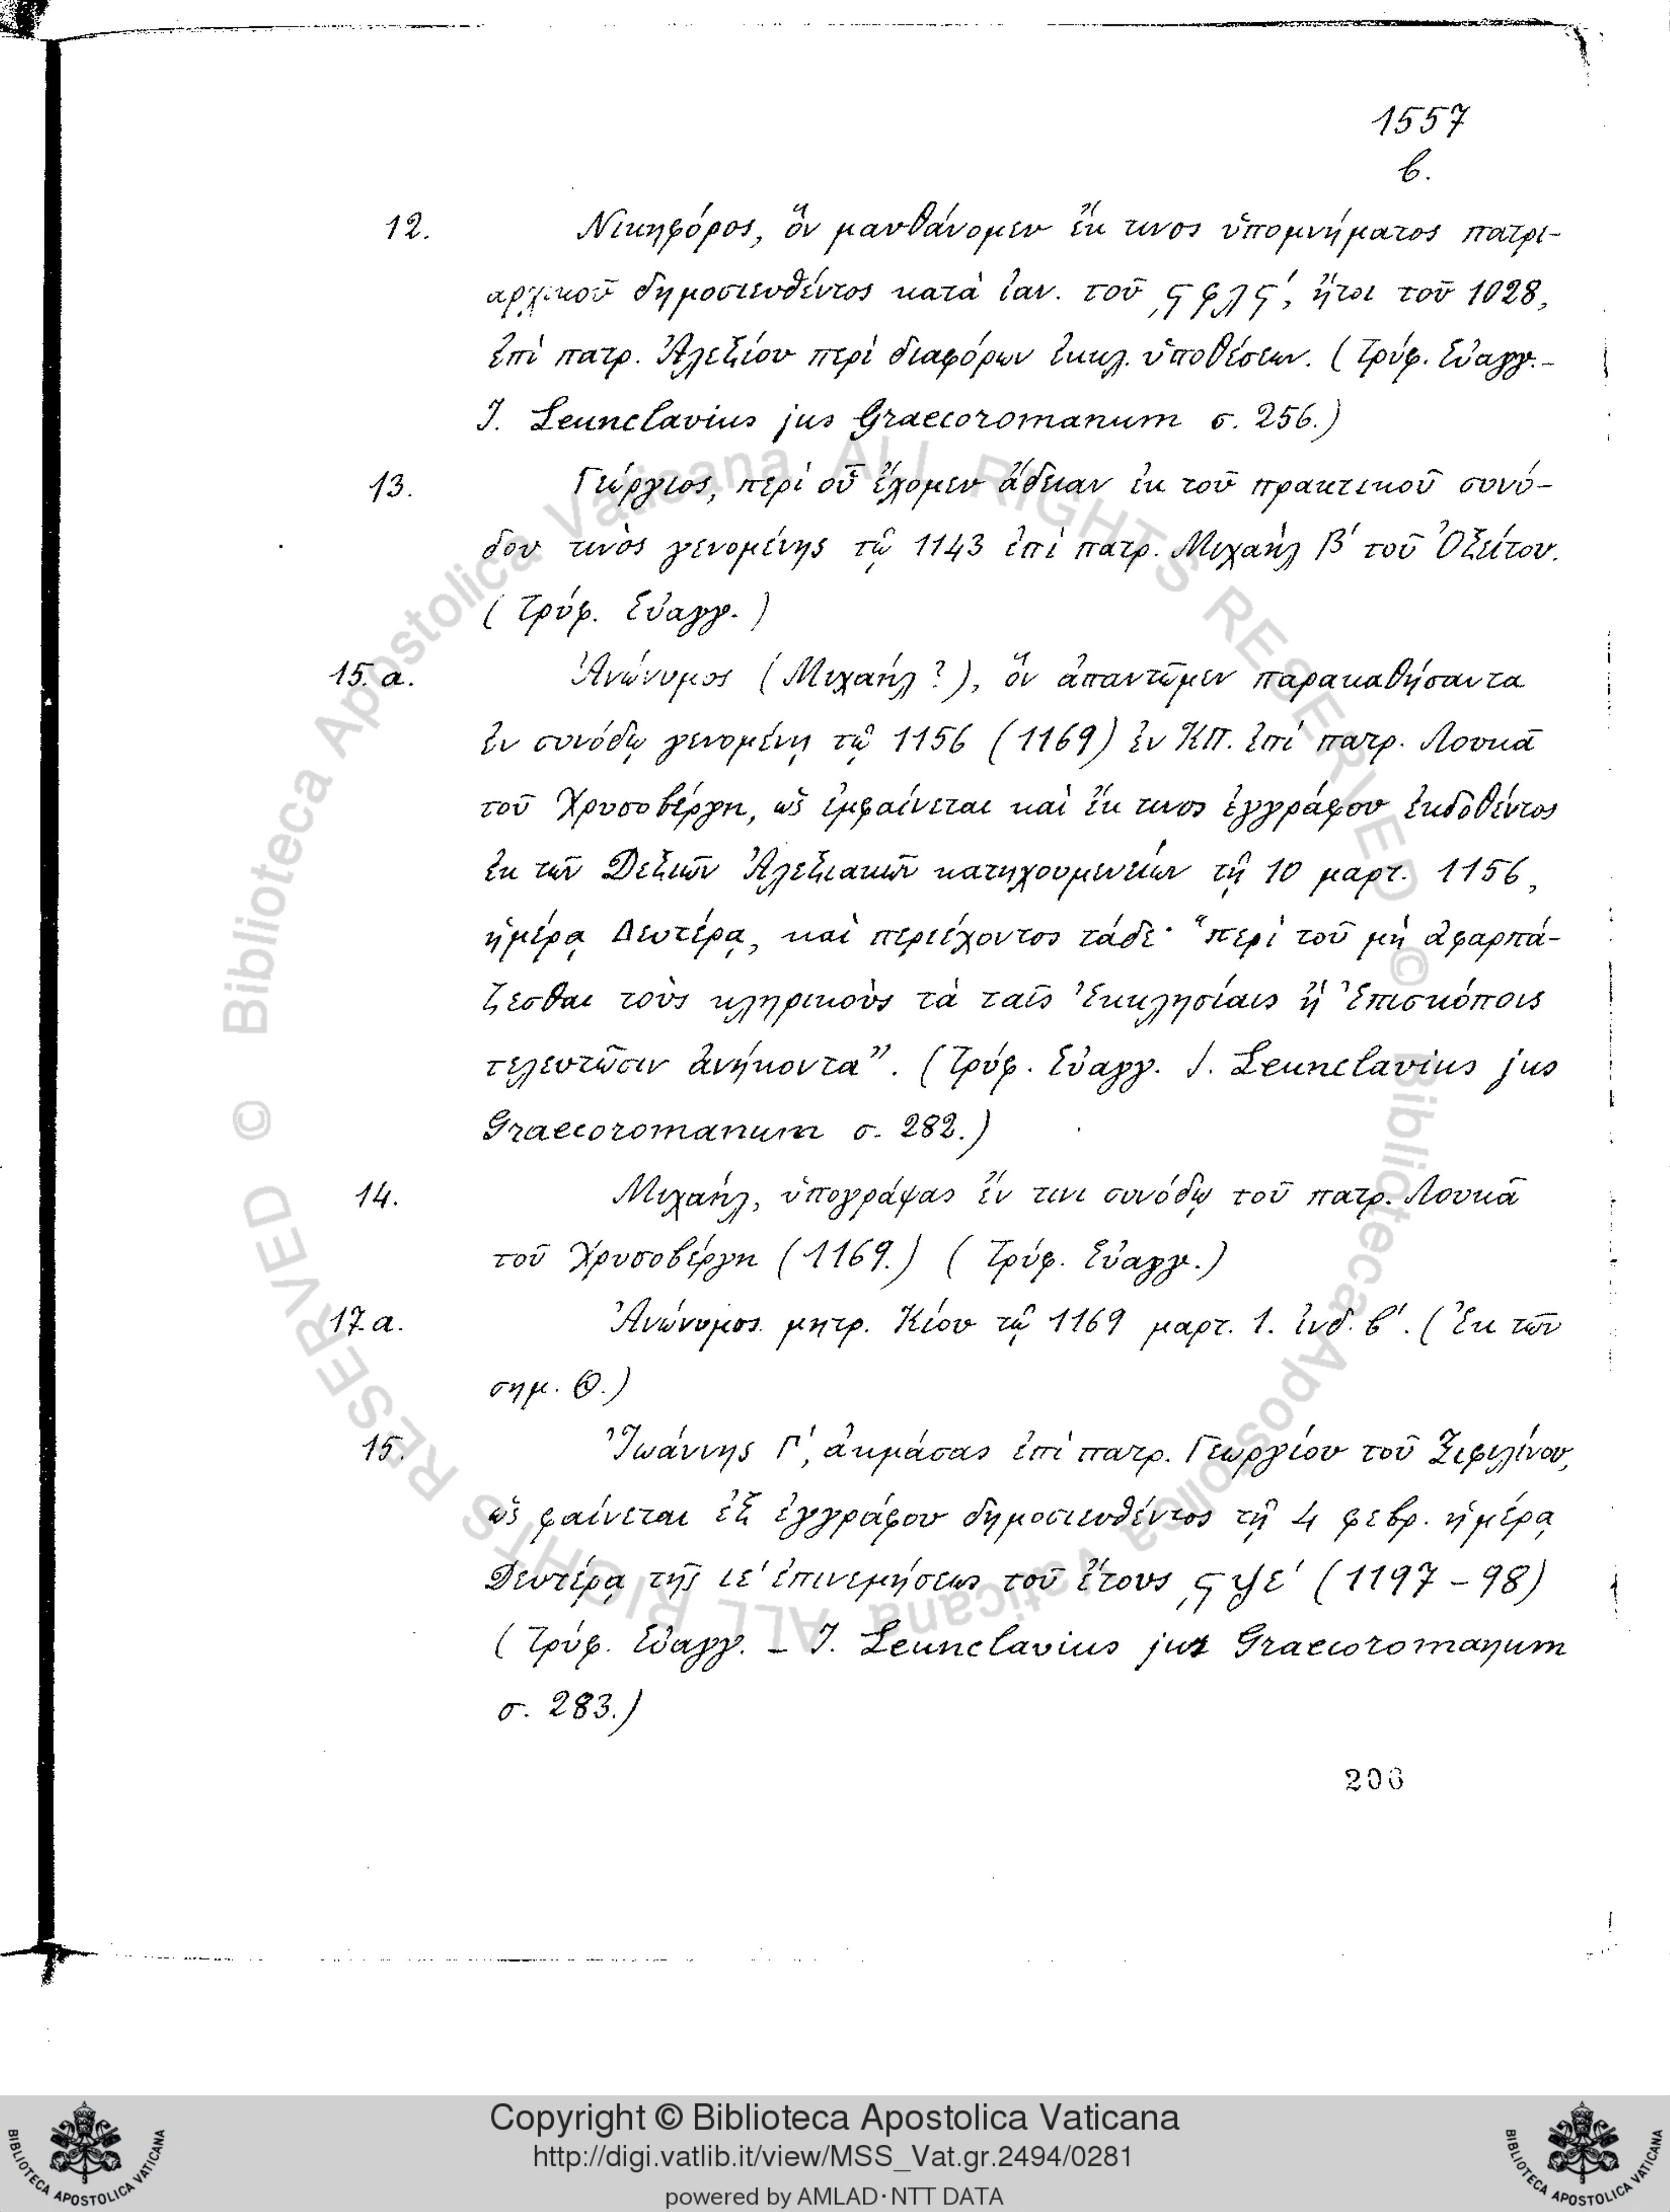 1557
β.
12. Νικηφόρος, ὃν μανθάνομεν ἔκ τινος ὑπομνήματος πατρι-
αρχικοῦ δημοσιευθέντος κατὰ ἰαν. τοῦ ͵ϛφλϛ΄, ἤτοι τοῦ 1028,
ἐπὶ πατρ. Ἀλεξίου περὶ διαφόρων ἐκκλ. ὑποθέσεων. (Τρύφ. Εὐαγγ.-
J. Leunclavius jus Graecoromanum σ. 256.)
13. Γεώργιος, περὶ οὗ ἔχομεν ἄδειαν ἐκ τοῦ πρακτικοῦ συνό-
δου τινὸς γενομένης τῷ 1143 ἐπὶ πατρ. Μιχαὴλ Β΄ τοῦ Ὀξείτου.
(Τρύφ. Εὐαγγ.)
15.α. Ἀνώνυμος (Μιχαήλ?), ὃν ἀπαντῶμεν παρακαθήσαντα
ἐν συνόδῳ γενομένῃ τῷ 1156 (1169) ἐν ΚΠ. ἐπὶ πατρ. Λουκᾶ
τοῦ Χρυσοβέργη, ὡς ἐμφαίνεται καὶ ἔκ τινος ἐγγράφου ἐκδοθέντος
ἐκ τῶν Δεξιῶν Ἀλεξιακῶν κατηχουμενείων τῇ 10 μαρτ. 1156,
ἡμέρᾳ Δευτέρᾳ, καὶ περιέχοντος τάδε· "περὶ τοῦ μὴ ἀφαρπά-
ζεσθαι τοὺς κληρικοὺς τὰ ταῖς Ἐκκλησίαις ἢ Ἐπισκόποις
τελευτῶσιν ἀνήκοντα". (Τρύφ. Εὐαγγ. J. Leunclavius jus
Graecoromanum σ. 282.)
14. Μιχαήλ, ὑπογράψας ἔν τινι συνόδῳ τοῦ πατρ. Λουκᾶ
τοῦ Χρυσοβέργη (1169.) (Τρύφ. Εὐαγγ.)
17.α. Ἀνώνυμος μητρ. Κίου τῷ 1169 μαρτ. 1. ἰνδ. β΄. (Ἐκ τῶν
σημ. Θ.)
15. Ἰωάννης Γ΄, ἀκμάσας ἐπὶ πατρ. Γεωργίου τοῦ Ξιφιλίνου,
ὡς φαίνεται ἐξ ἐγγράφου δημοσιευθέντος τῇ 4 φεβρ. ἡμέρᾳ
Δευτέρᾳ τῆς ιε΄ ἐπινεμήσεως τοῦ ἔτους ͵ϛψε΄ (1197-98)
(Τρύφ. Εὐαγγ. - J. Leunclavius jus Graecoromanum
σ. 283.)
206
© Biblioteca Apostolica Vaticana ALL RIGHTS RESERVED © Biblioteca Apostolica Vaticana ALL RIGHTS RESERVED
Copyright © Biblioteca Apostolica Vaticana
http://digi.vatlib.it/view/MSS_Vat.gr.2494/0281
powered by AMLAD·NTT DATA
BIBLIOTECA APOSTOLICA VATICANA
BIBLIOTECA APOSTOLICA VATICANA